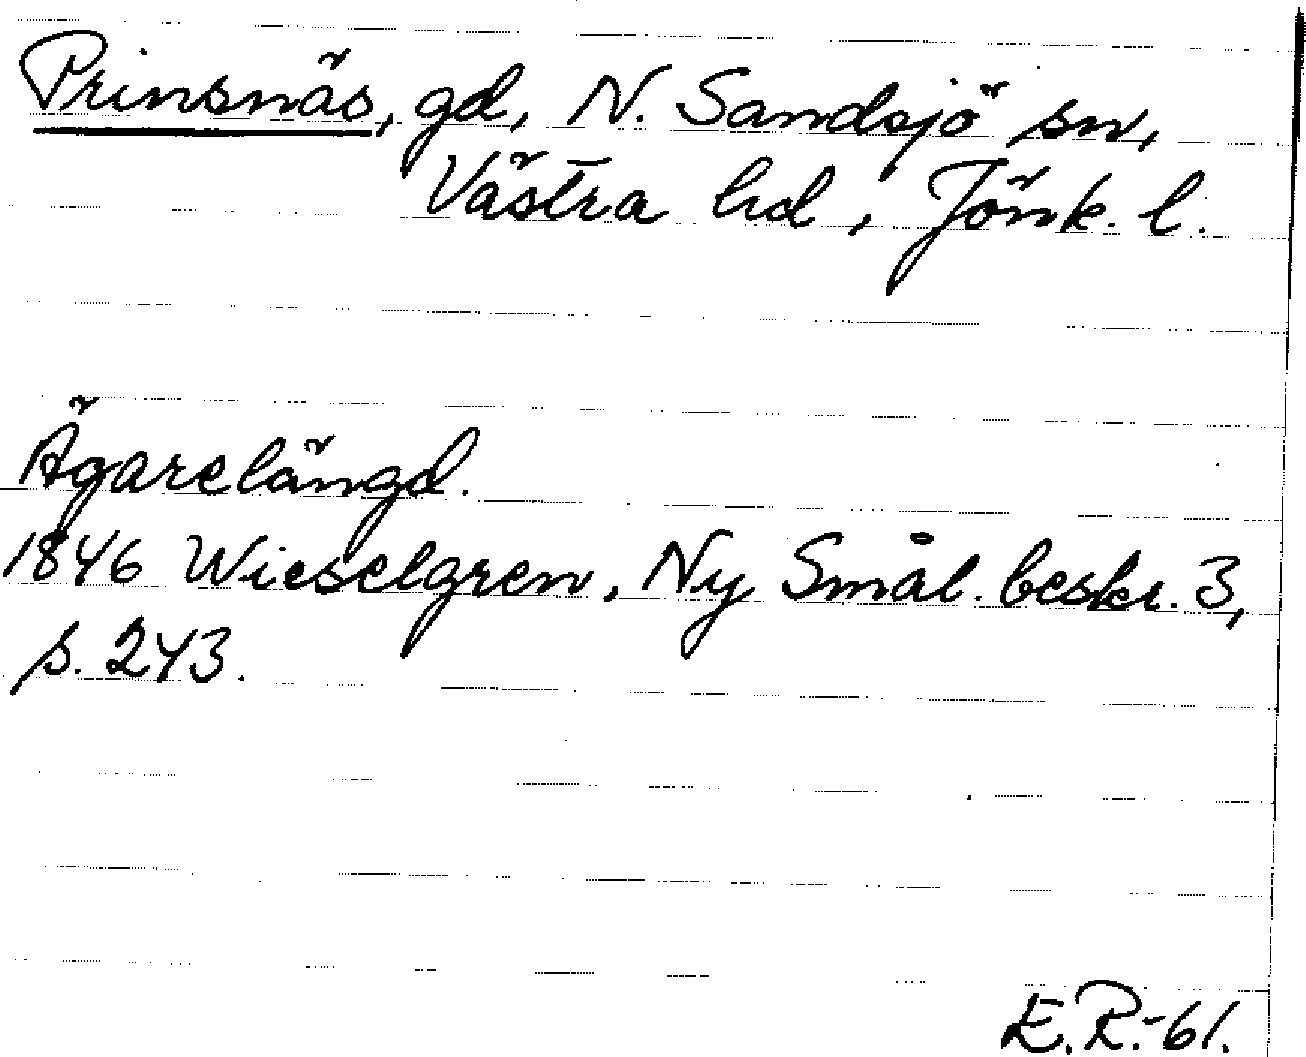 Prinsnäs, gd, N. Sandsjö sn,
Västra hd, Jönk. l.
Ägarelängd.
1846 Wieselgren, Ny Smål. beskr. 3,
s. 243.
E.R.-61.